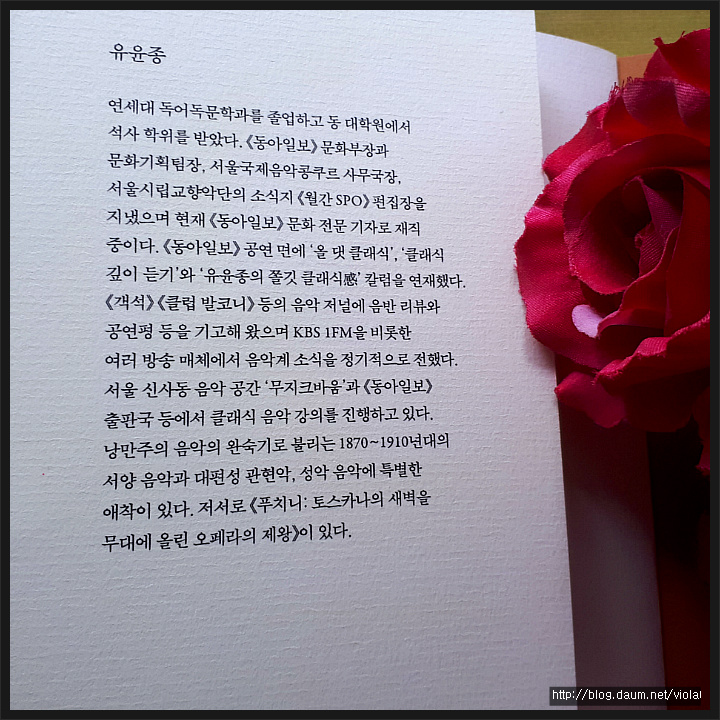 유윤종
연세대 독어독문학과를 졸업하고 동 대학원에서
석사 학위를 받았다. 《동아일보》 문화부장과
문화기획팀장, 서울국제음악콩쿠르 사무국장,
서울시립교향악단의 소식지 《월간 SPO》 편집장을
지냈으며 현재 《동아일보》 문화 전문 기자로 재직
중이다. 《동아일보》 공연 면에 ‘올 댓 클래식’, ‘클래식
깊이 듣기’와 ‘유윤종의 쫄깃 클래식感’ 칼럼을 연재했다.
《객석》 《클럽 발코니》 등의 음악 저널에 음반 리뷰와
공연평 등을 기고해 왔으며 KBS 1FM을 비롯한
여러 방송 매체에서 음악계 소식을 정기적으로 전했다.
서울 신사동 음악 공간 ‘무지크바움’과 《동아일보》
출판국 등에서 클래식 음악 강의를 진행하고 있다.
낭만주의 음악의 완숙기로 불리는 1870~1910년대의
서양 음악과 대편성 관현악, 성악 음악에 특별한
애착이 있다. 저서로 《푸치니: 토스카나의 새벽을
무대에 올린 오페라의 제왕》이 있다.
http://blog.daum.net/viola